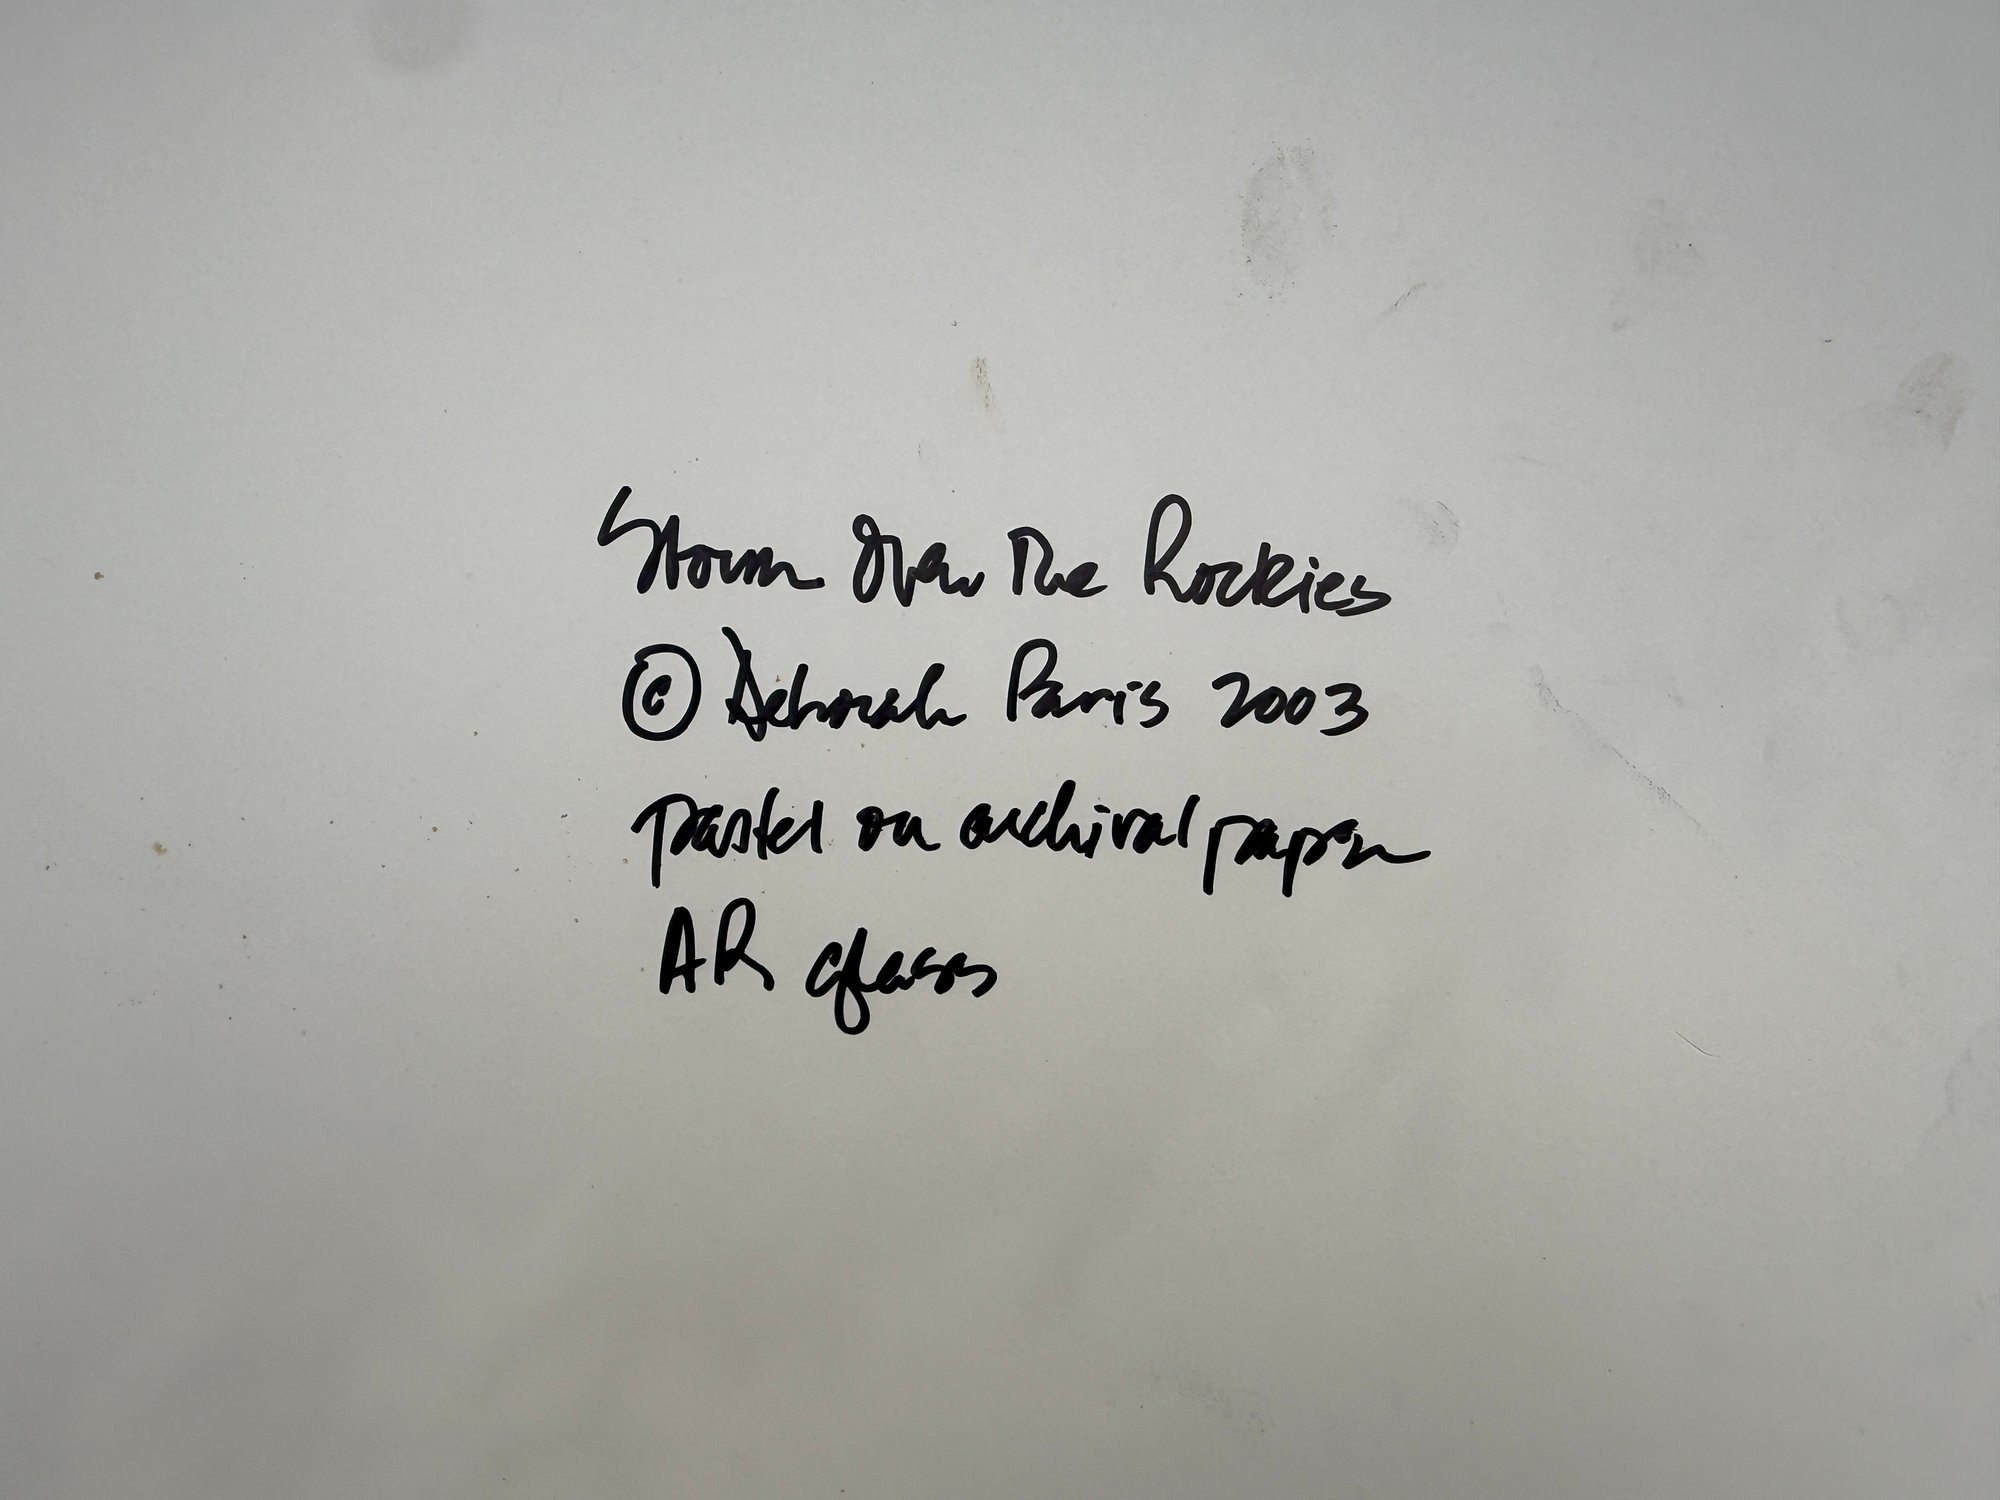 Storm Over The Rockies
© Deborah Paris 2003
pastel on archival paper
AR glass